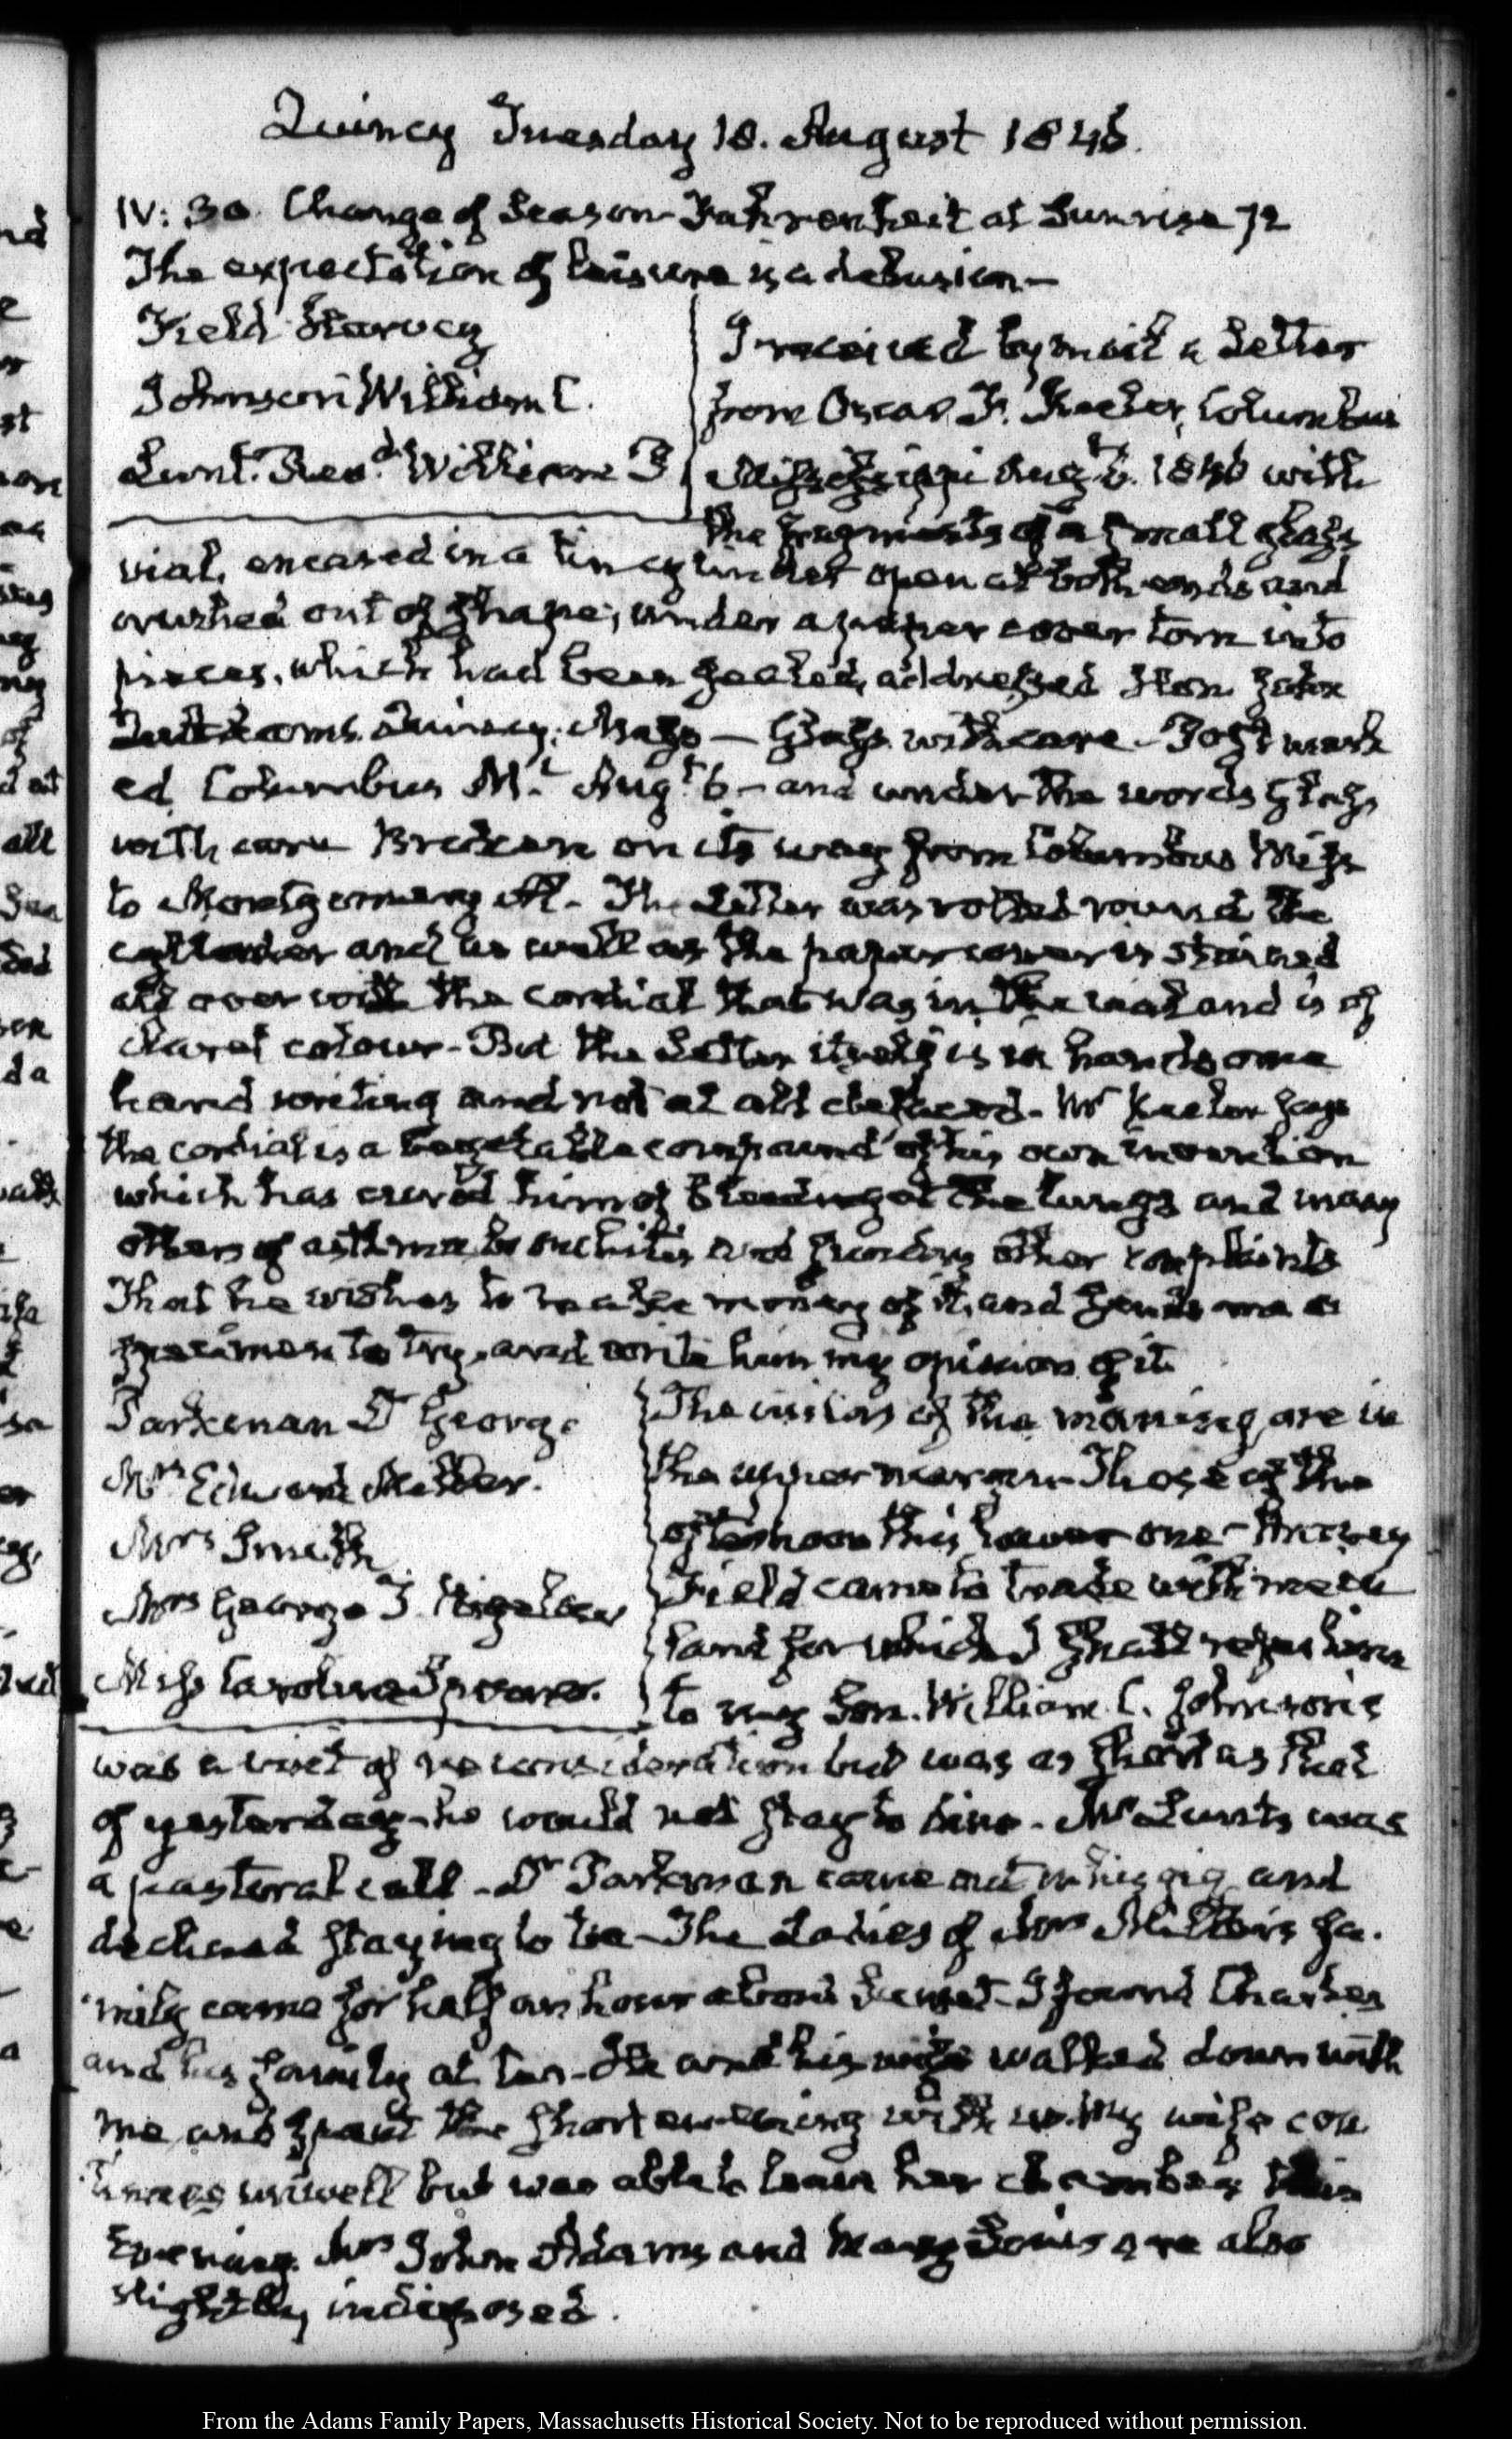 Quincy Tuesday 18. August 1846.
IV: 30. Change of Season Fahrenheit at Sunrise 72
The expectation of leisure is a delusion —
Field Harvey
Johnson William C.
Lunt. Revd. William P
I received by mail a Letter
from Oscar T. Keeler, Columbus
Mississippi Augt. 6. 1846 with
the fragments of a small glass
vial, encased in a tin cylinder open at both ends and
crushed out of shape; under a paper cover torn into
pieces, which had been sealed, addressed Hon. John
Quincy, Mass — Glass with care — Post mark
ed Columbus Mi. Augt. 6 — and under the words Glass
with care Broken on its way from Columbus Miss
to Montgomery Al. — The Letter was rolled round the
cylinder and as well as the paper cover is stained
all over with the cordial that was in the vial and is of
claret colour — But the Letter itself is in handsome
hand writing and not at all defaced. Mr Keeler says
the cordial is a vegetable compound of his own invention
which has cured him of bleeding at the lungs and many
others of asthma bronchitis and sundry other complaints
That he wishes to make money of it, and sends me a
specimen to try, and write him my opinion of it
Parkman Dr George
Mrs Edward Miller.
Mrs Smith
Mrs George T.
Miss Caroline
The visitors of the morning are in
the upper margin Those of the
afternoon this lower one — Harvey
Field came to trade with me
land for which I shall refer him
to my Son. William C. Johnson's
was a visit of reconsideration but was as short as that
of yesterday — he would not stay to dine — Mr Lunt's was
a pastoral call — Dr Parkman came out in his gig and
declined staying to tea — The Ladies of Mrs Miller's fa-
mily came for half an hour about Sunset — I found Charles
and his family at tea — He and his wife walked down with
me and spent the short evening with us. My wife con
tinues unwell but was able to leave her chamber this
Evening. Mrs John Adams and Mary Louisa are also
slightly indisposed.
From the Adams Family Papers, Massachusetts Historical Society. Not to be reproduced without permission.